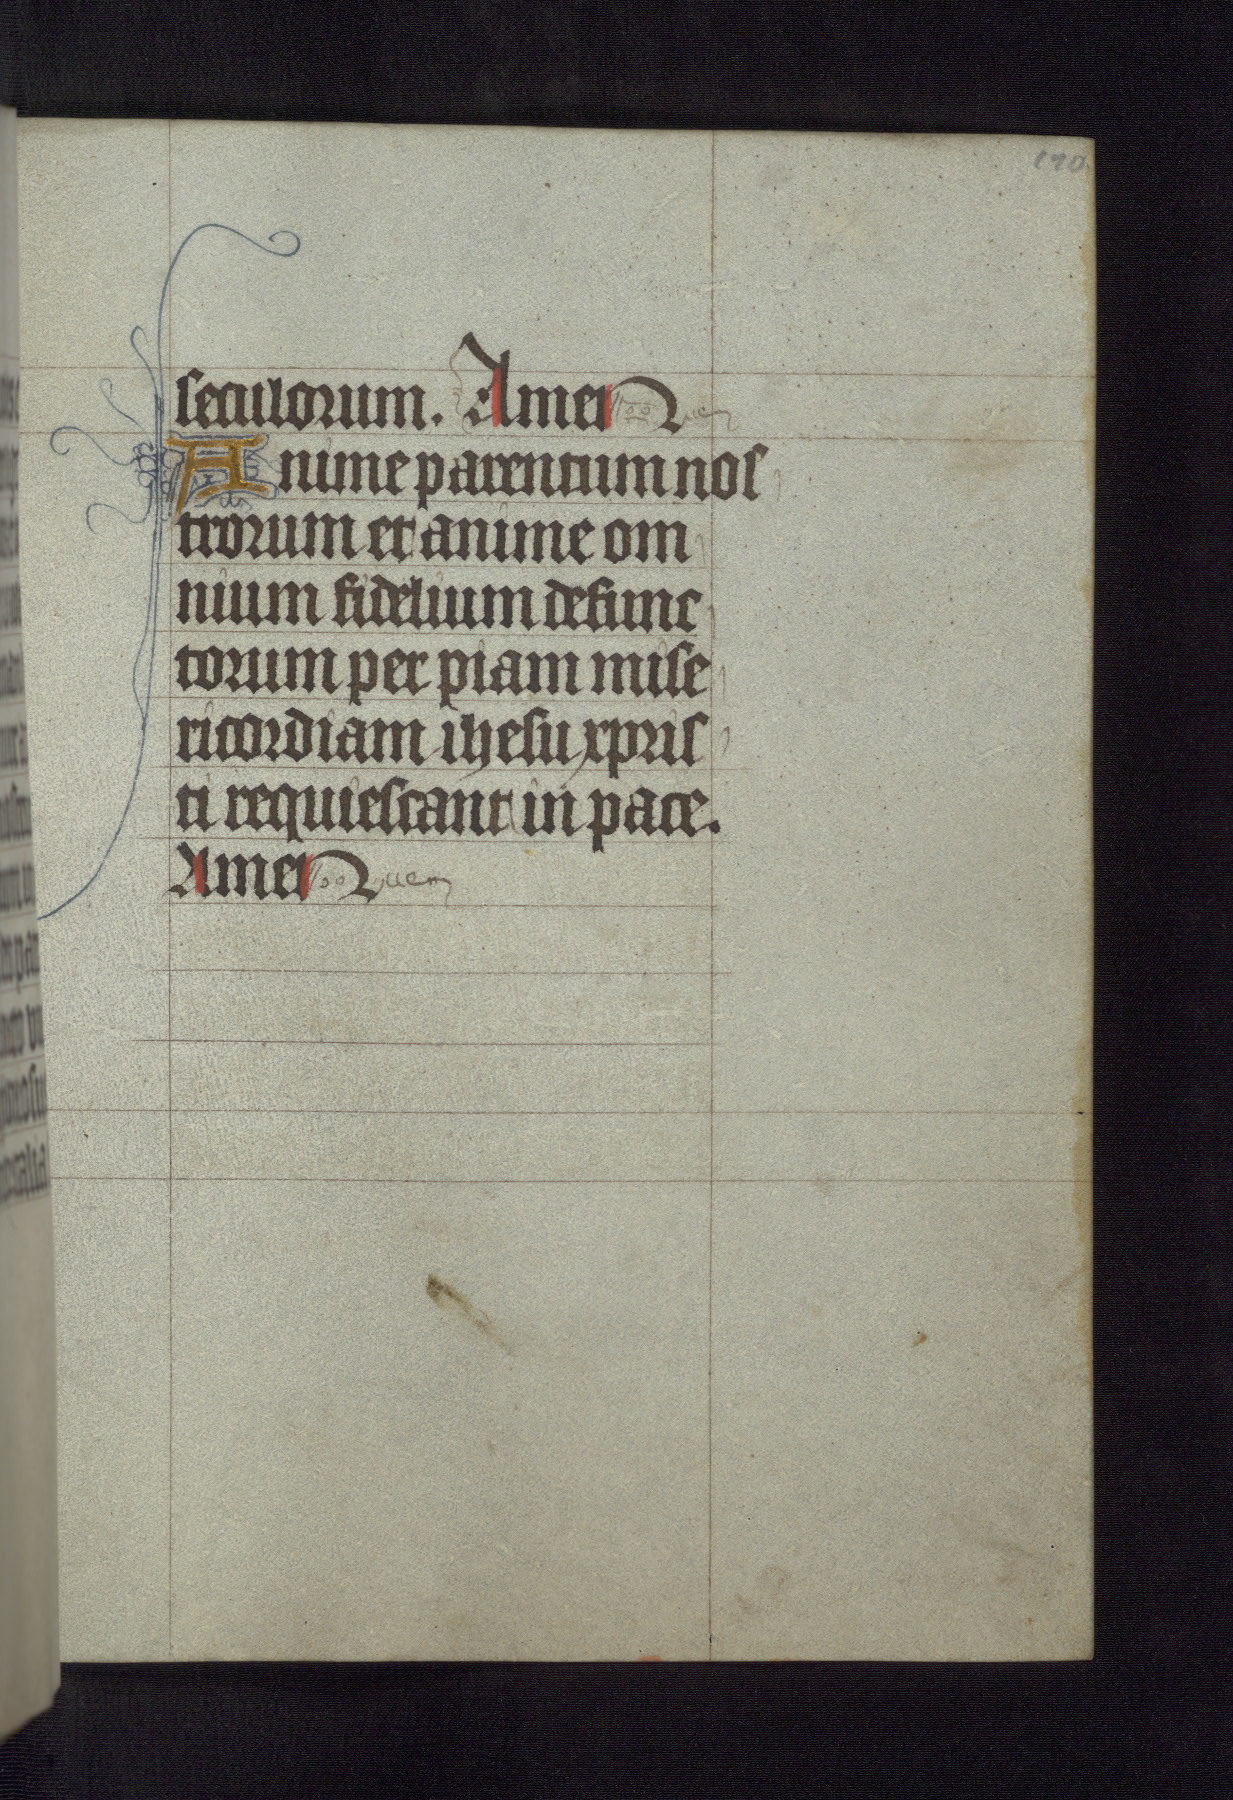 seculorum. Amen
Anime parentum nos
trorum et anime om
nium fidelium defunc
torum per piam mise
ricordiam ihesu xpris
ti requiescant in pace.
Amen